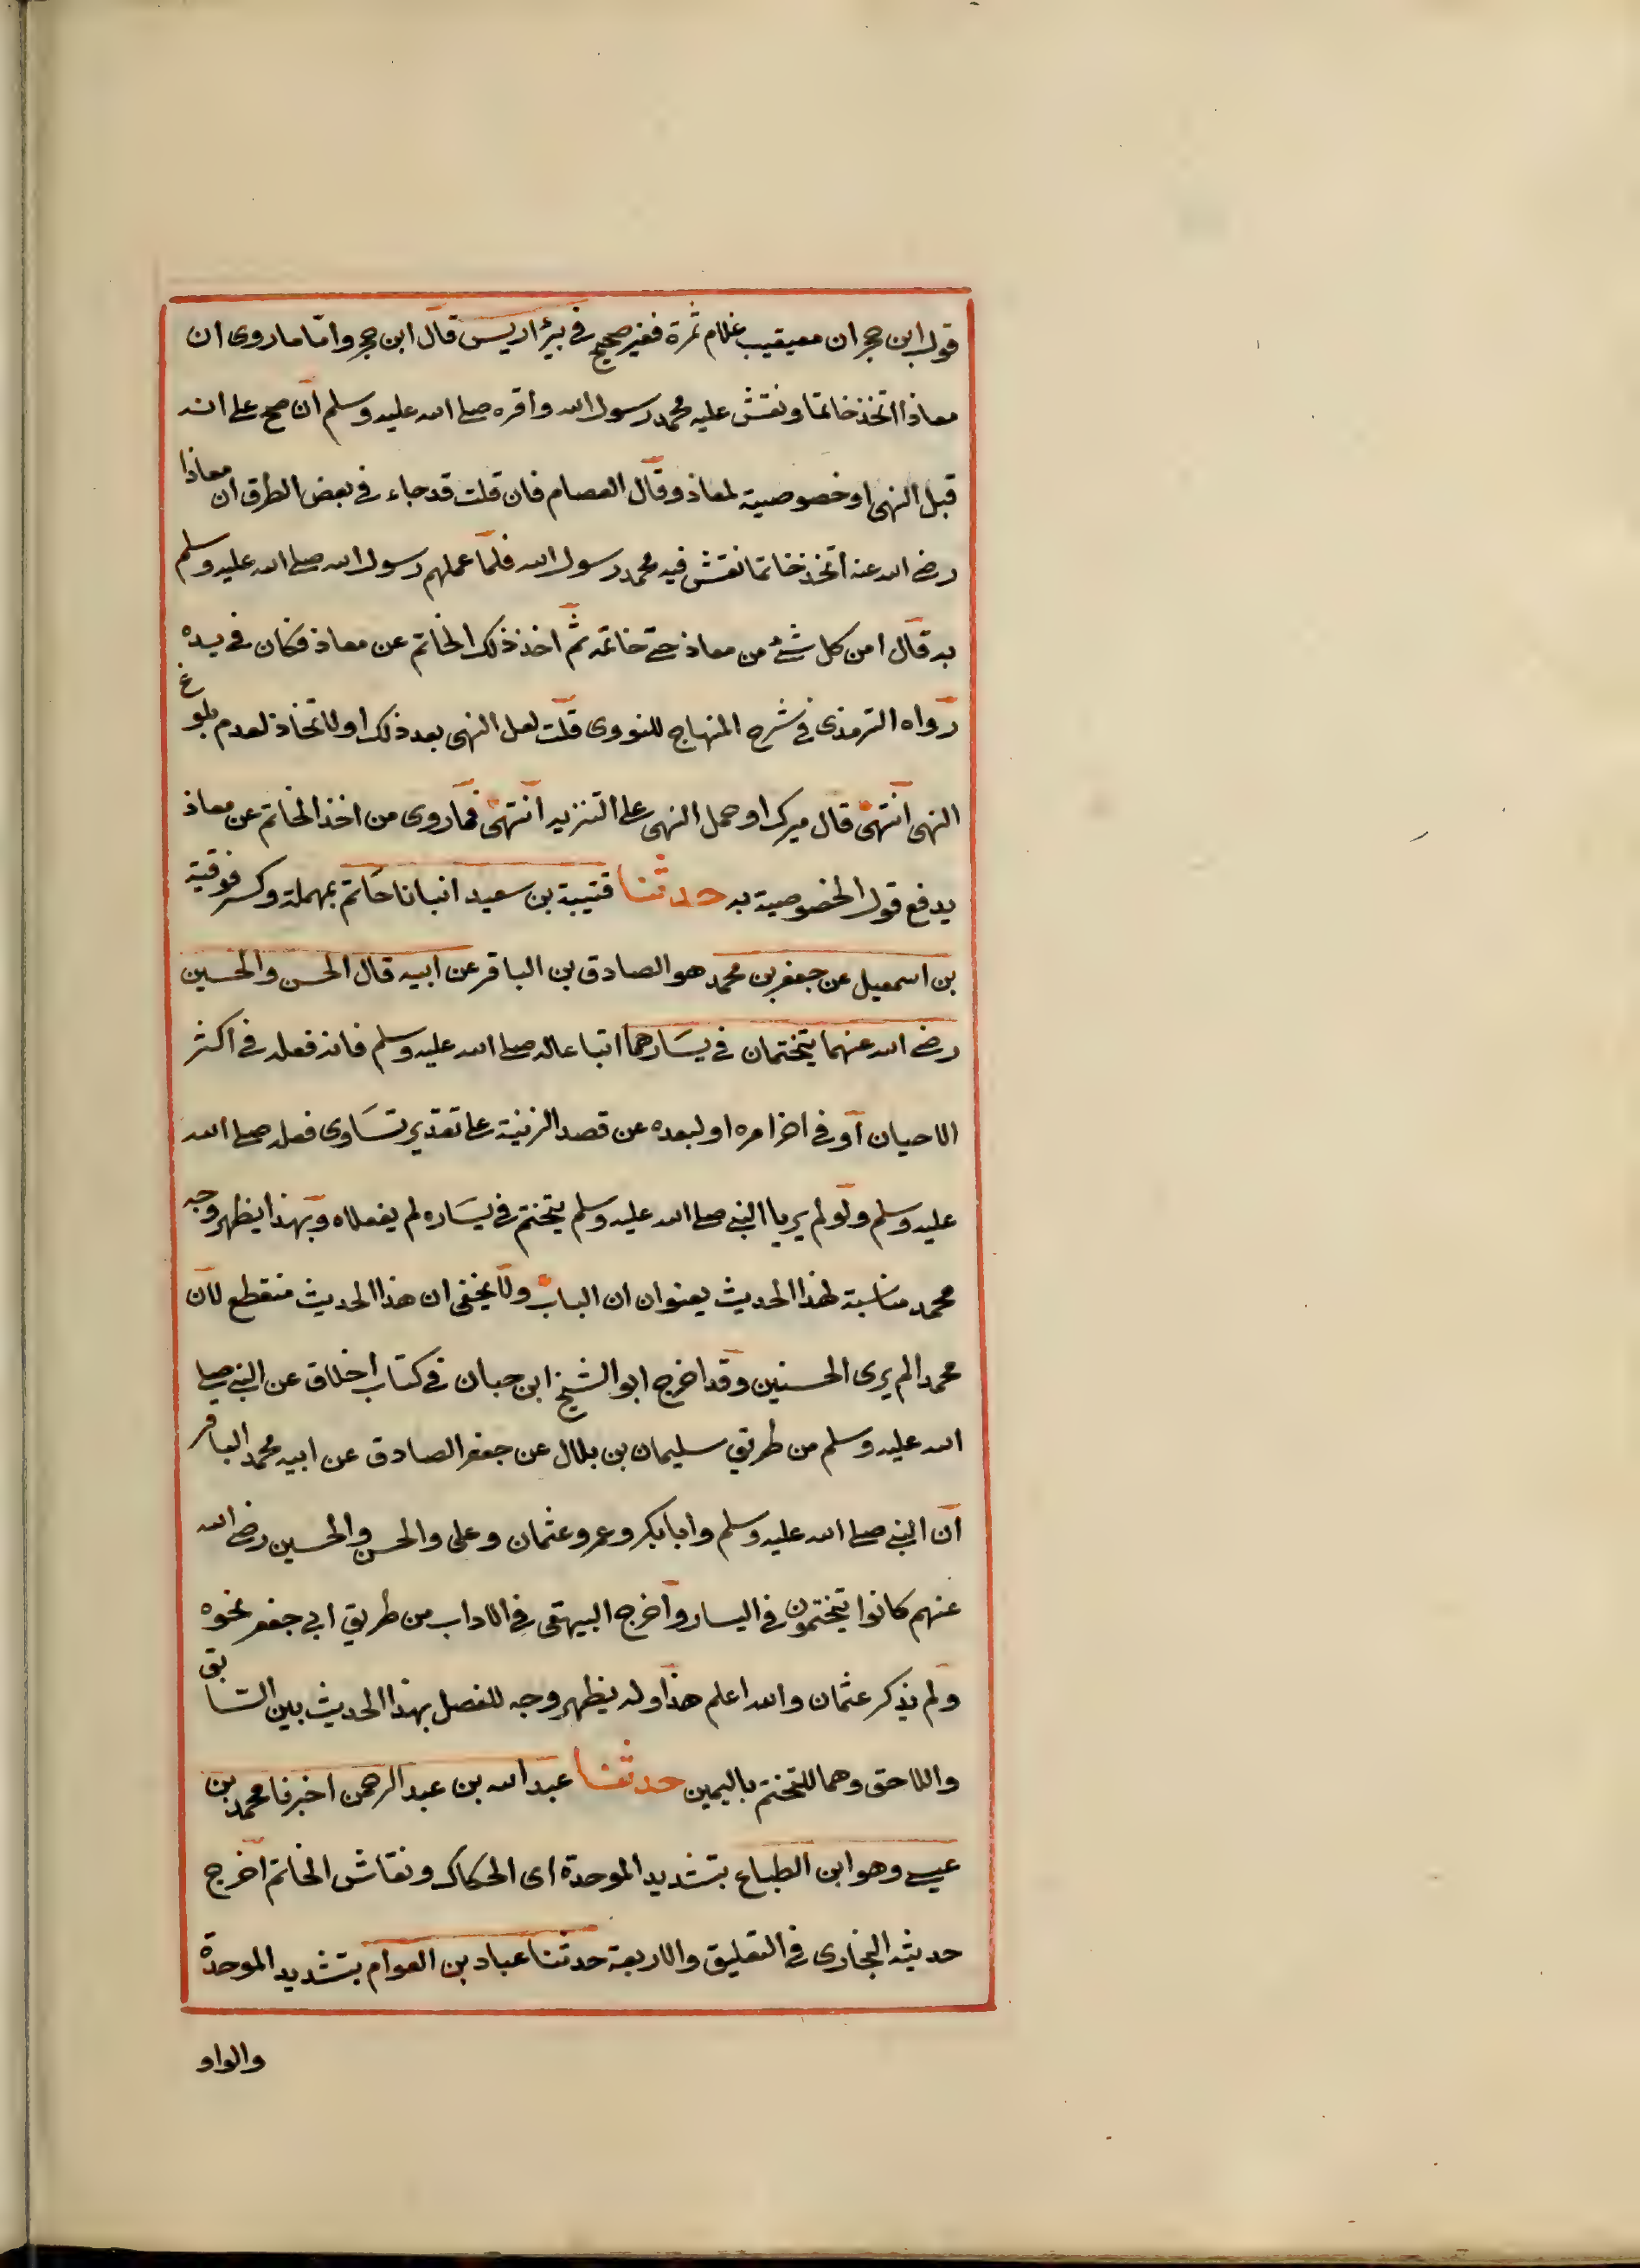 قول ابن حجر ان معيقيب غلام ثمرة فغير صحيح في بيرٔ اريس قال ابن حجر وامّا ما روى ان
معاذا اتخذ خاتما ونقش عليه محمد رسول الله واقره صلى الله عليه وسلم ان صح على انه
قبل النهى او خصوصية لمعاذ وقال العصام فان قلت قد جاء في بعض الطرق ان معاذا
رضى الله عنه اتخذ خاتما نقش فيه محمد رسول الله فلمّا عملهم رسول الله صلى الله عليه وسلم
به قال امن كل شئ من معاذ حتى خاتمه ثم اخذ ذلك الخاتم عن معاذ فكان في يده
رواه الترمذى في شرح المنهاج للنووى قلت لعل النهى بعد ذلك او لاتخاذ لعدم بلوغ
النهى انتهى قال ميرك او حمل النهى على التنزيه انتهى فما روى من اخذ الخاتم عن معاذ
يدفع قول الخصوصية به حدثنا قتيبة بن سعيد انبانا حاتم بمهملة وكسر فوقية
بن اسمعيل عن جعفر بن محمد هو الصادق بن الباقر عن ابيه قال الحسن والحسين
رضى الله عنهما يتختمان في يسارهما اتباعا له صلى الله عليه وسلم فانه فعله في اكثر
الاحيان او في اخر امره او لبعده عن قصد الزينة على تقدير تساوى فعله صلى الله
عليه وسلم ولو لم يريا النبي صلى الله عليه وسلم يتختم في يساره لم يفعلاه وبهذا يظهر وجه
محمد مناسبة لهذا الحديث بعنوان ان الباب ولا يخفى ان هذا الحديث منقطع لان
محمدا لم يرى الحسنين وقد اخرج ابو الشيخ ابن حبان في كتاب اخلاق عن النبي صلى
الله عليه وسلم من طريق سليمان بن بلال عن جعفر الصادق عن ابيه محمد الباقر
ان النبي صلى الله عليه وسلم وابا بكر وعمر وعثمان وعلى والحسن والحسين رضى الله
عنهم كانوا يتختمون في اليسار واخرج البيهقى في الاداب من طريق ابى جعفر نحوه
ولم يذكر عثمان والله اعلم هذا وله يظهر وجه للفصل بهذا الحديث بين السّابق
واللاحق وهما للتختم باليمين حدثنا عبد الله بن عبد الرحمن اخبرنا محمد بن
عيسى وهو ابن الطباع بتشديد الموحدة اى الحكاك ونقاش الخاتم اخرج
حديثه البخارى في التعليق والاربعة حدثنا عباد بن العوام بتشديد الموحدة
والواو